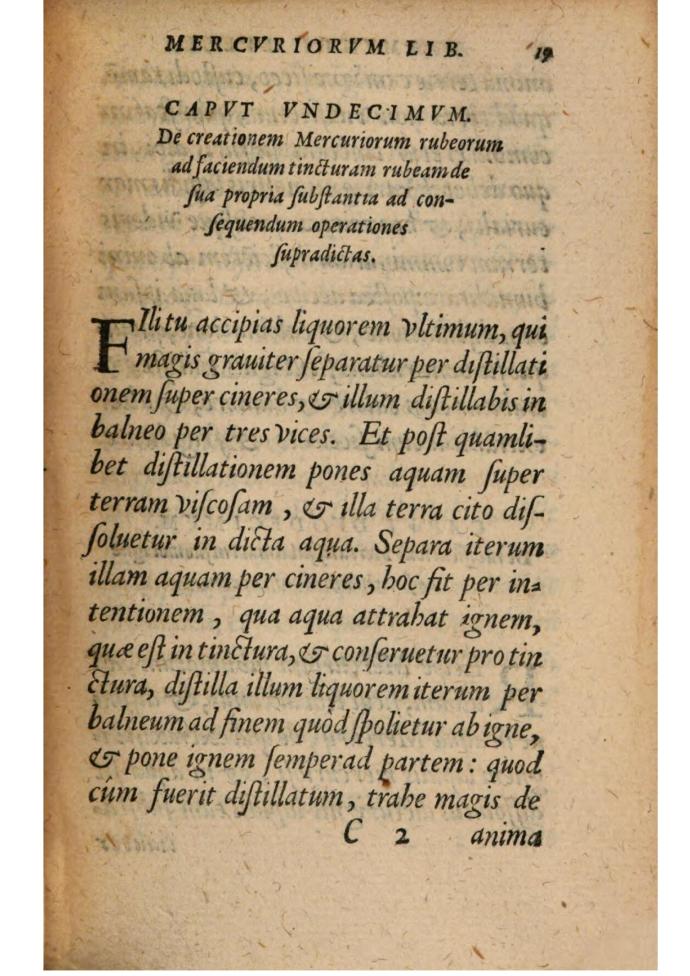 MERCVRIORVM LIB. 19
CAPVT VNDECIMVM.
De creationem Mercuriorum rubeorum
ad faciendum tincturam rubeam de
sua propria substantia ad con-
sequendum operationes
supradictas.
FIli tu accipias liquorem vltimum, qui
magis grauiter separatur per distillati
onem super cineres, & illum distillabis in
balneo per tres vices. Et post quamli-
bet distillationem pones aquam super
terram viscosam, & illa terra cito dis-
soluetur in dicta aqua. Separa iterum
illam aquam per cineres, hoc fit per in-
tentionem, qua aqua attrahat ignem,
quæ est in tinctura, & conseruetur pro tin
ctura, distilla illum liquorem iterum per
balneum ad finem quòd spolietur ab igne,
& pone ignem semper ad partem: quod
cúm fuerit distillatum, trahe magis de
C 2 anima